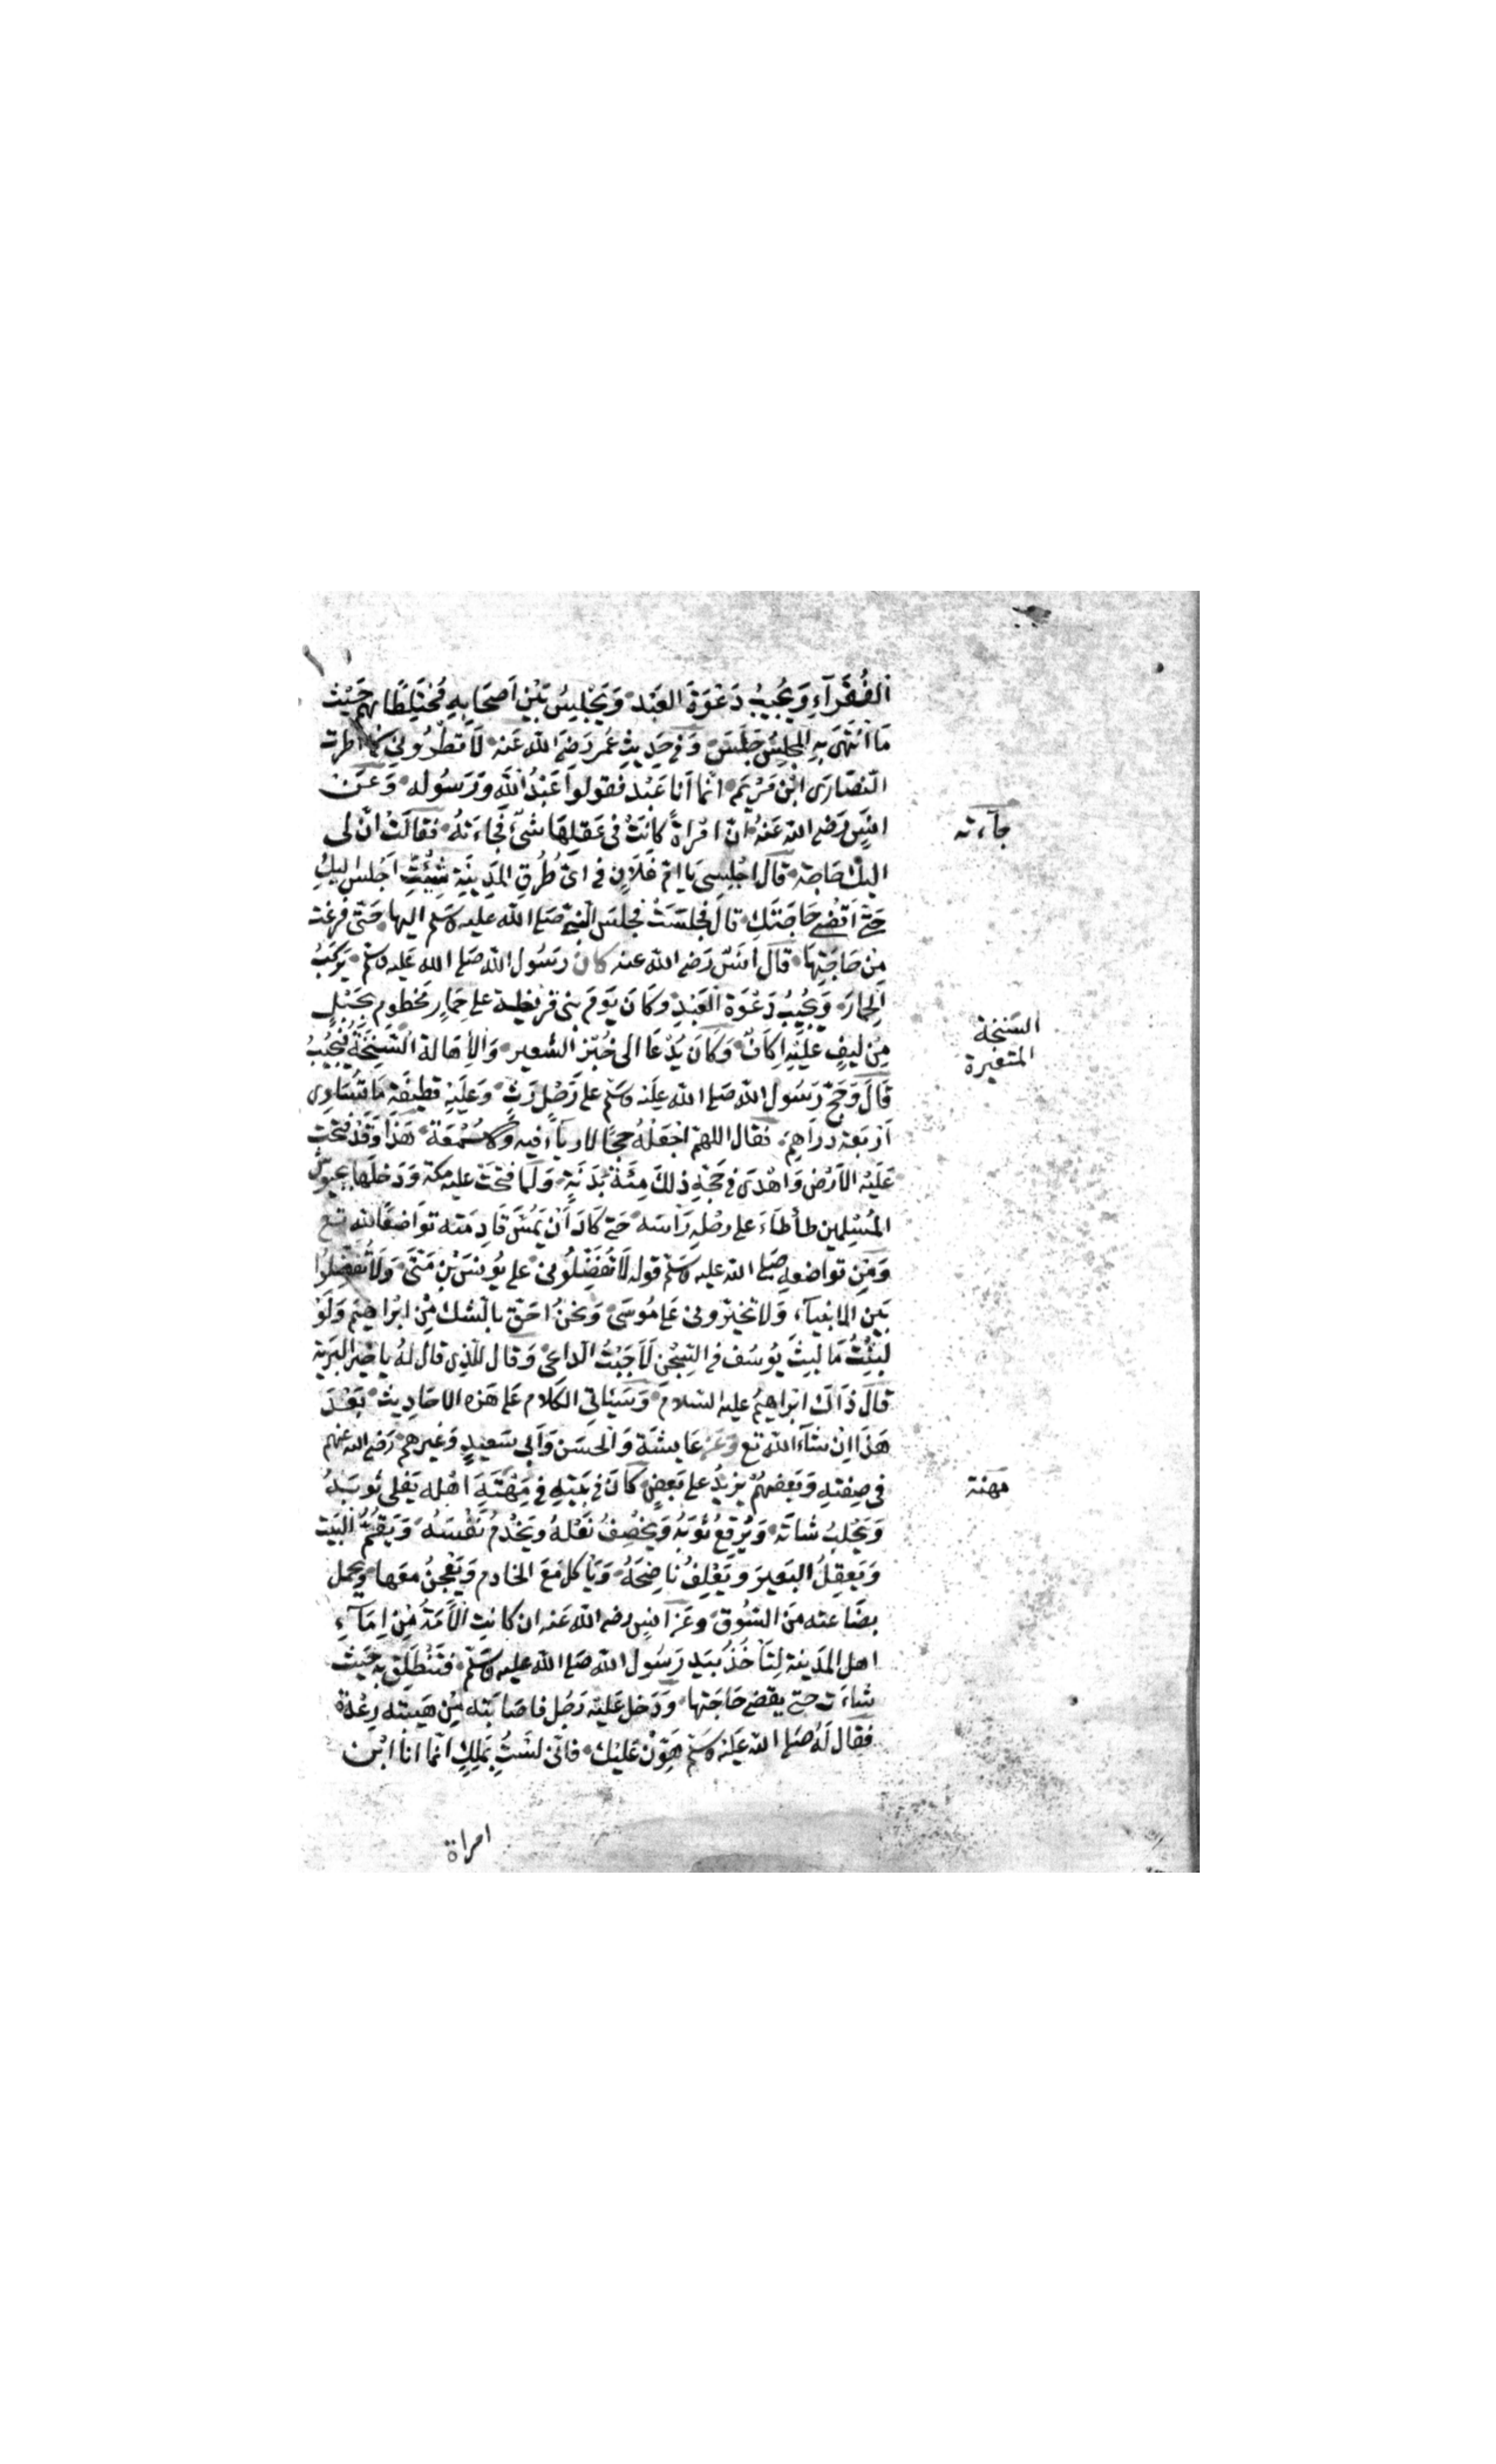 الفُقَرَآءِ وَيُجيبُ دَعْوَةَ العَبْد وَيَجْلِسُ بَيْنَ اَصْحَابِهِ مُخْتَلِطًا بهم حَيْثُ
مَا انْتَهَى بِهِ المجلِسُ جَلَسَ وَفى حَديثِ عُمَر رَضِىَ الله عَنه لَا تُطْرُونى كما اطرت
النّصَارَى ابْنَ مَرْيَم انّما اَنا عَبْد فقولوا عَبْدُ اللهِ وَرَسُوله وَعَنْ
انَسٍ رَضى الله عَنهُ ان امْرَاةً كَانَتْ فى عَقلِهَا شَىْءٌ فجاءَتْهُ فقالَتْ انّ لى
جآءته
اليك حَاجَة قالَ اجْلِسِى يا امّ فُلَانٍ فى اىّ طُرُقِ المَدِينَةِ شِئْتِ اَجْلسْ اليكِ
حَتّى اَقْضى حَاجَتَكِ قالَ فَجَلَسَتْ فجلسَ النّبىّ صَلى الله عليه وسَلم اليها حَتّى فرغت
مِنْ حَاجَتِهَا قَالَ انَسٌ رَضى الله عنه كان رَسُول الله صَلى الله عَليه وسَلّم يَرْكَبُ
الحِمَارَ وَيُجِيبُ دَعْوَة العَبْدِ وكَانَ يَوْمَ بنى قريظة على حِمَارٍ مَخطوم بحَبْلٍ
مِنْ ليفٍ عَليْهِ اِكَافٌ وَكَانَ يُدْعَا الى خُبْز الشعير وَالْاِهَالة السَّنِخَةِ فيُجيبُ
السّنخة
المتغيرة
قالَ وَحَجّ رَسُول الله صَلى الله عليه وسَلّم على رَحْلٍ رَثٍّ وَعَليْهِ قطيفة مَا تُسَاوِى
اَرْبَعَة دَرَاهِمَ فقال اللهمّ اجْعَلْهُ حَجًّا لا رياءَ فيه وَلا سُمْعَة هَذَا وَقَدْ فُتحتْ
عَليْه الاَرْض وَاهْدَى فى حَجّهِ ذلكَ مِئَة بَدَنَةٍ وَلَما فتحَتْ عليه مكة وَدَخلَها بجيوش
المُسْلِمين طأطَاَءَ على رحْلِهِ رَاسَه حَتى كادَ اَنْ يَمُسّ قادِمَته توَاضعًا لله تع
وَمِن توَاضعِهِ صَلى الله عليه وسَلم قوله لَا تُفَضِّلُونى على يُونسَ بْنِ مَتَّى وَلَا تُفَضِّلُوا
بَين الانبيآء وَلا تخيّرونى عَلى مُوسَى وَنحنُ احَقّ بالشّك مِنْ ابْرَاهِيمَ وَلَوْ
لَبِثْتُ مَا لبِثَ يُوسُف فى السِّجْنِ لَاَجَبْتُ الدّاعى وَقال للّذى قال لهُ يا خيْر البَريّة
قالَ ذَاكَ ابرَاهِيمُ عليه السّلام وَسَيَاتى الكلام عَلى هَذه الاحَادِيث بَعْدَ
هَذَا اِنْ شآءَ الله تع وَعَنْ عَايشَة وَالحَسَن وَاَبى سَعِيدٍ وَغيرهِم رَضى الله عنهم
فى صِفتهِ وَبَعضهمْ يزيدُ على بَعضٍ كانَ فى بَيْتِهِ فى مِهْنَةِ اهْلِه يَفلى ثوبَهُ
مهنة
وَيَحْلِبُ شاتَه وَيُرقِعُ ثوْبَهُ وَيَخْصِفُ نعْلهُ ويَخْدمُ نَفْسَهُ وَيَقُمُّ البَيْت
وَيَعقِلُ البَعيرَ ويَعْلِفُ نَاضِحَهُ وَيَاكلُ مَعَ الخَادم وَيَعْجنُ معهَا وَيحمل
بضَاعته مِنَ السّوق وَعَنْ انسٍ رضى الله عَنه ان كانتِ الْاَمَةُ مِنْ اِمَآءِ
اهل المَدينة لتَاْخُذُ بيَدِ رَسُول الله صَلى الله عليه وسَلم فتَنْطَلِق به حَيْث
شاءَت حتى يقضى حَاجَتها وَدَخل عَليْه رَجُل فاصَابَته مِنْ هَيبته رِعْدَة
فقال لَهُ صَلى الله عَليه وسَلم هَوّنْ عَليْك فانّى لسْتُ بمَلِكٍ انّما انا ابْن
امراة